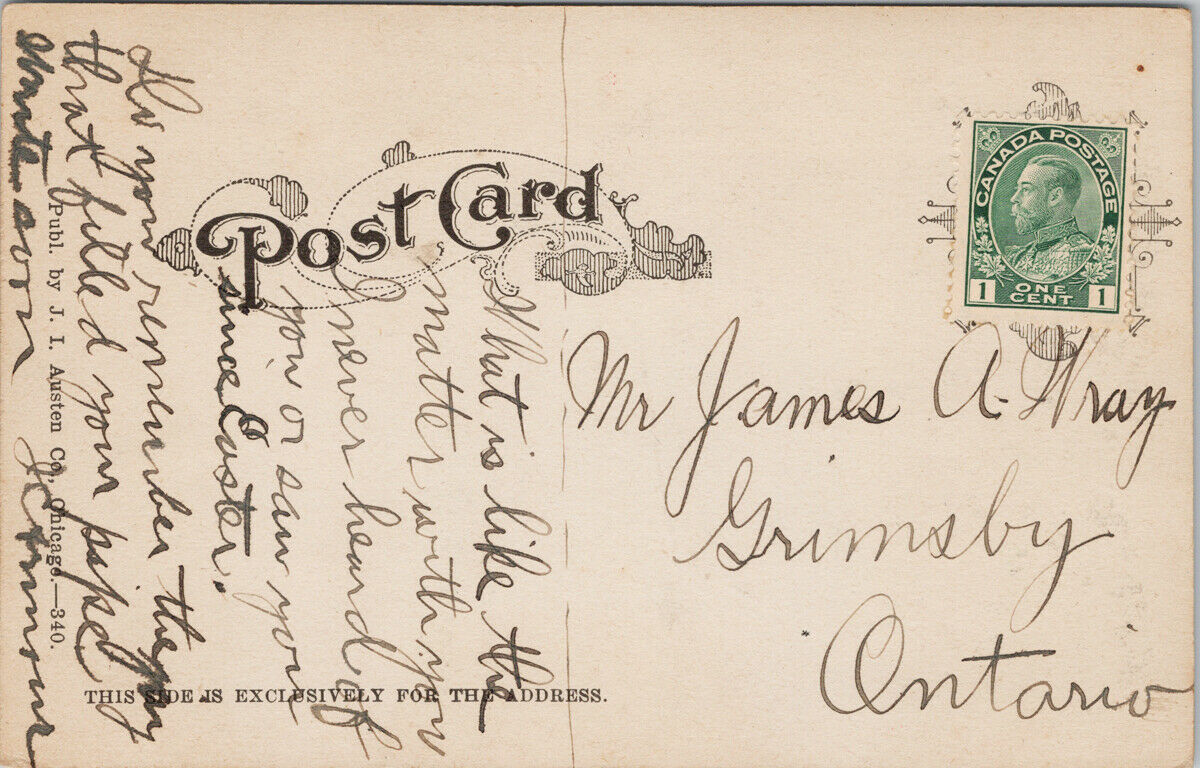 Post Card
CANADA POSTAGE
1 ONE CENT 1
Mr James A. Wray
Grimsby
Ontario
What is like the
matter with you
I never heard of
you or saw you
since Easter.
Do you remember the guy
that filled your pipe
write soon
Publ. by J. I. Austen Co., Chicago.—340.
THIS SIDE IS EXCLUSIVELY FOR THE ADDRESS.